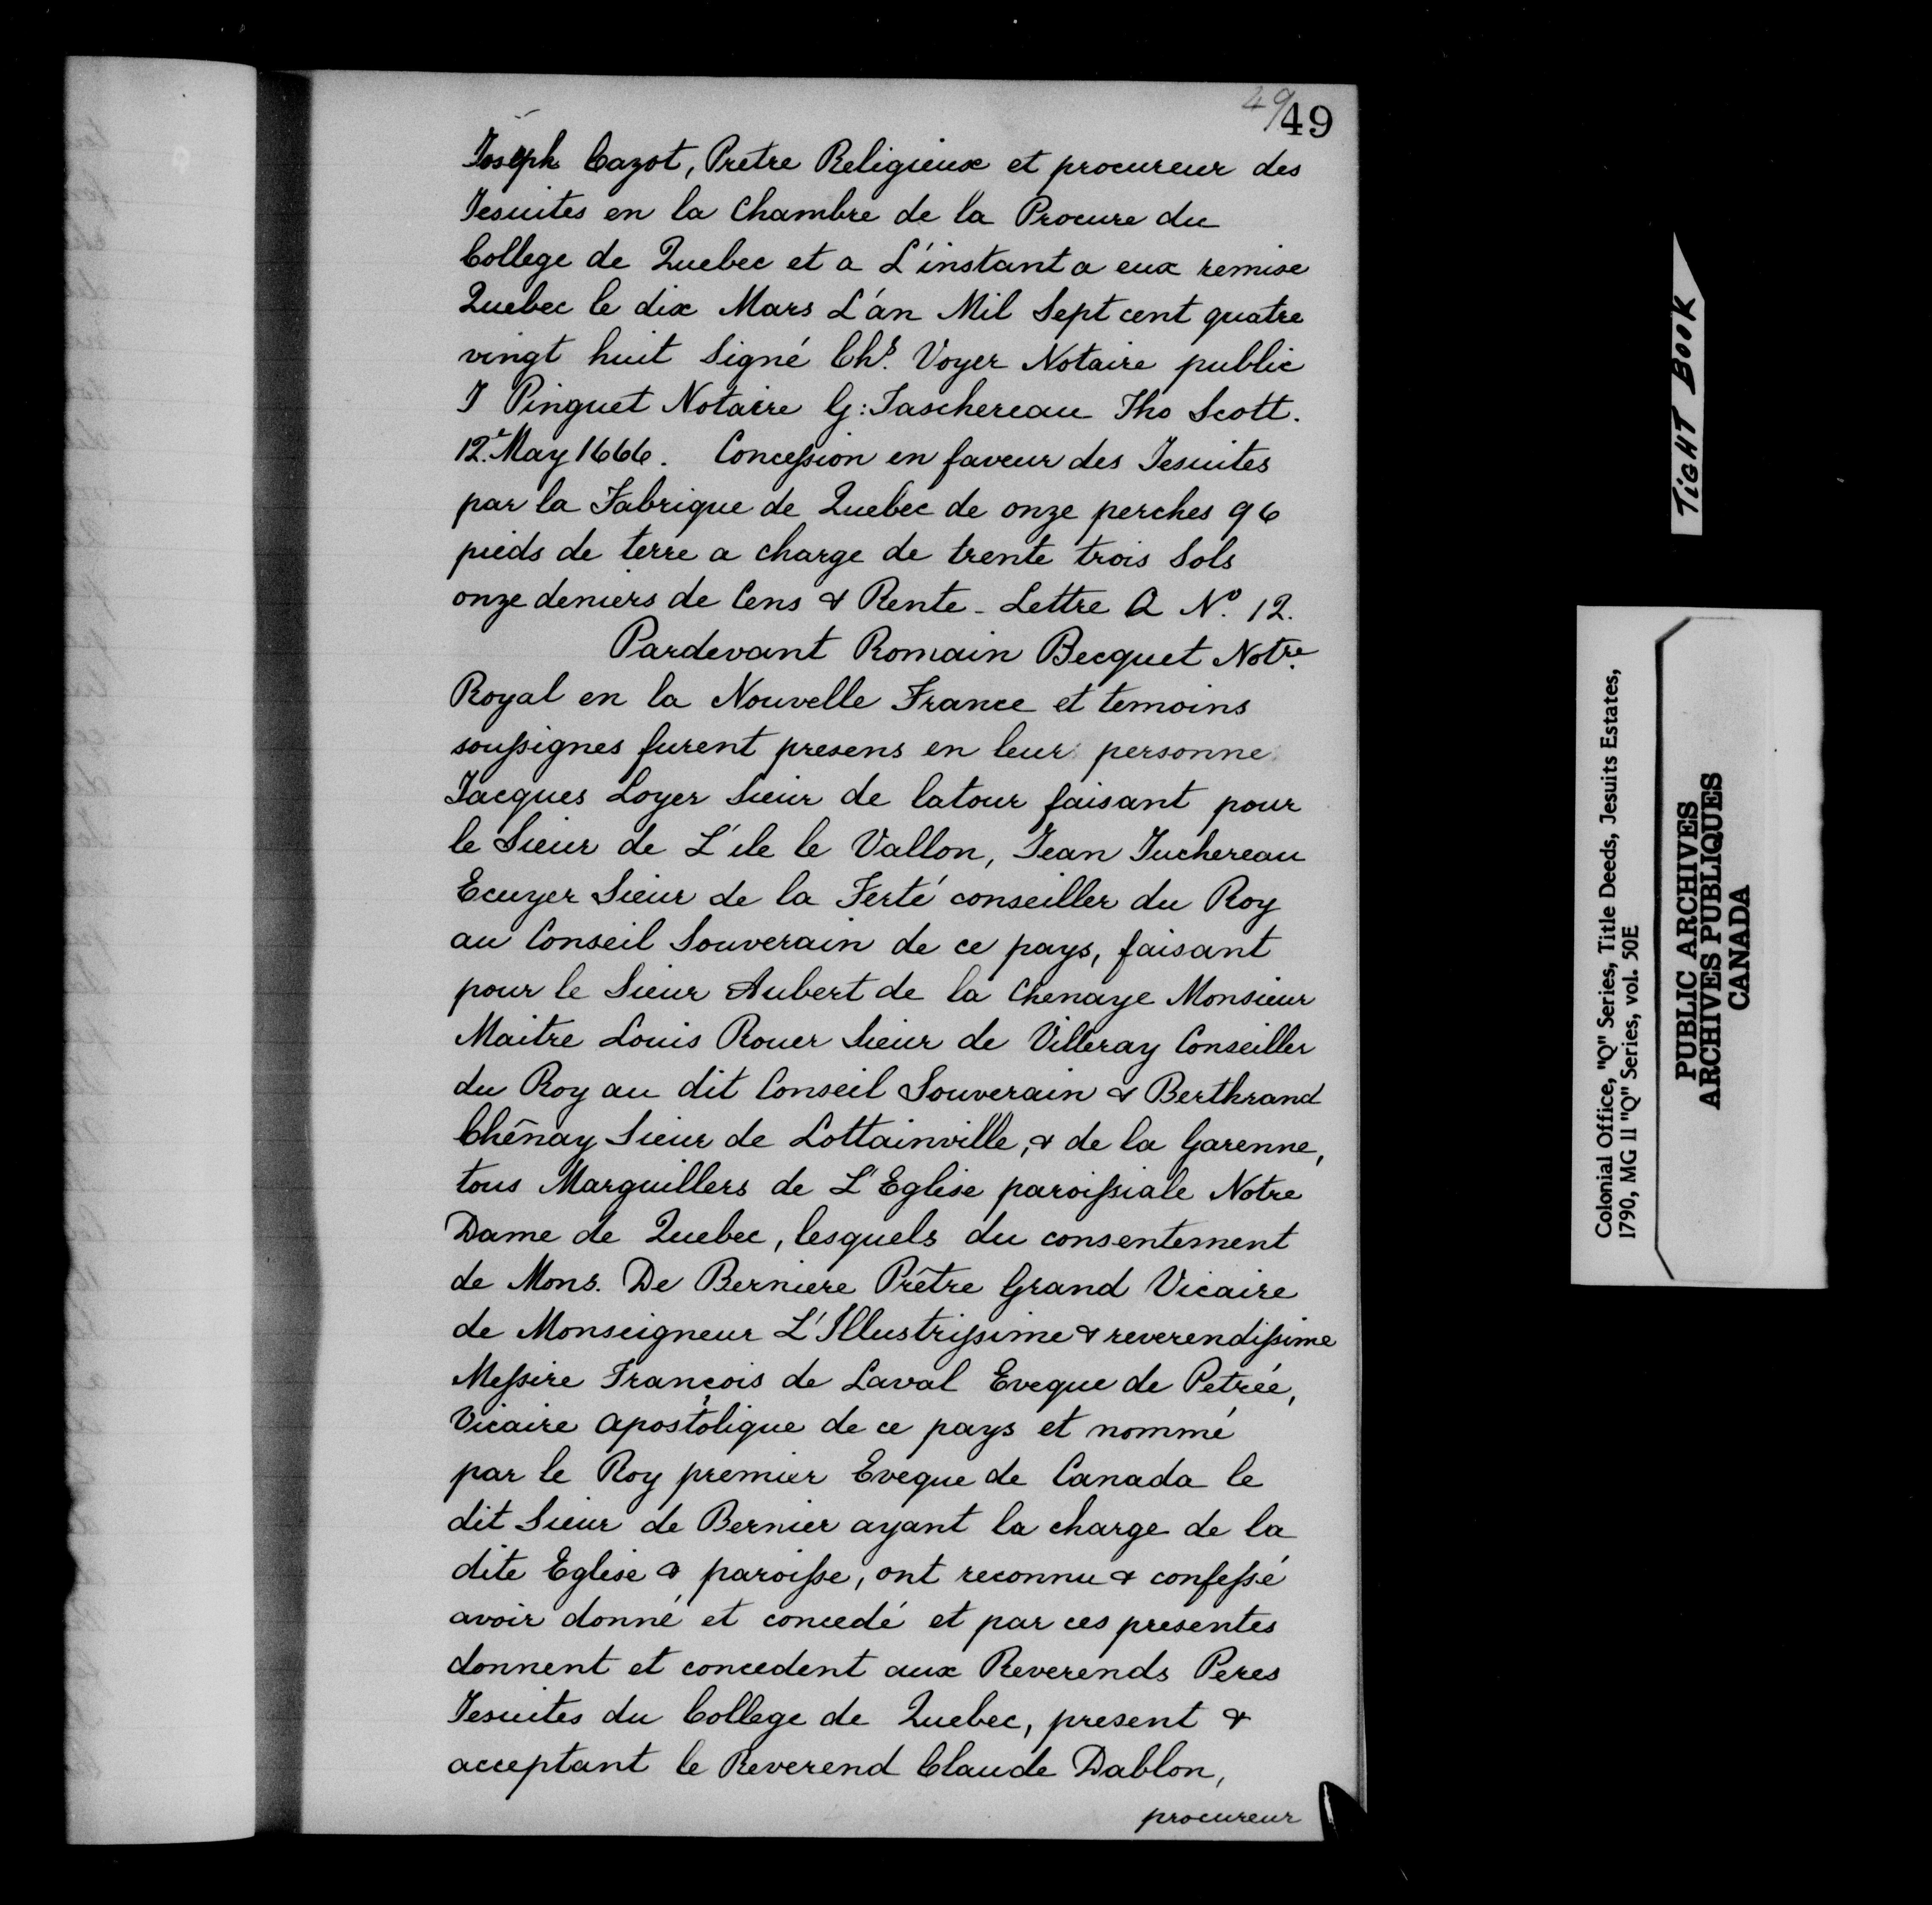 49/49
Joseph Cazot, Pretre Religieux et procureur des
Jesuites en la Chambre de la Procure du
College de Quebec et a L'instant a eux remise
Quebec le dix Mars L'an Mil Sept cent quatre
vingt huit Signé Chs. Voyer Notaire public
J Pinguet Notaire G: Taschereau Tho Scott.
12e May 1666. Conceſsion en faveur des Jesuites
par la Fabrique de Quebec de onze perches 96
pieds de terre a charge de trente trois Sols
onze deniers de Cens & Rente - Lettre A No. 12.
Pardevant Romain Becquet Notre.
Royal en la Nouvelle France et temoins
souſsignes furent presens en leur personne
Jacques Loyer Sieur de latour faisant pour
le Sieur de L'ile le Vallon, Jean Juchereau
Ecuyer Sieur de la Ferté conseiller du Roy
au Conseil Souverain de ce pays, faisant
pour le Sieur Aubert de la Chenaye Monsieur
Maitre Louis Rouer Sieur de Villeray Conseiller
du Roy au dit Conseil Souverain & Berthrand
Chênay Sieur de Lottainville, & de la Garenne,
tous Marguillers de L'Eglise paroiſsiale Notre
Dame de Quebec, lesquels du consentement
de Mons. De Berniere Prêtre Grand Vicaire
de Monseigneur L'Illustriſsime & reverendiſsime
Meſsire François de Laval Eveque de Petrée,
Vicaire apostolique de ce pays et nommé
par le Roy premier Eveque de Canada le
dit Sieur de Bernier ayant la charge de la
dite Eglise & paroiſse, ont reconnu & confeſsé
avoir donné et concedé et par ces presentes
donnent et concedent aux Reverends Peres
Jesuites du College de Quebec, present &
acceptant le Reverend Claude Dablon,
procureur
TIGHT BOOK
Colonial Office, "Q" Series, Title Deeds, Jesuits Estates,
1790, MG 11 "Q" Series, vol. 50E
PUBLIC ARCHIVES
ARCHIVES PUBLIQUES
CANADA